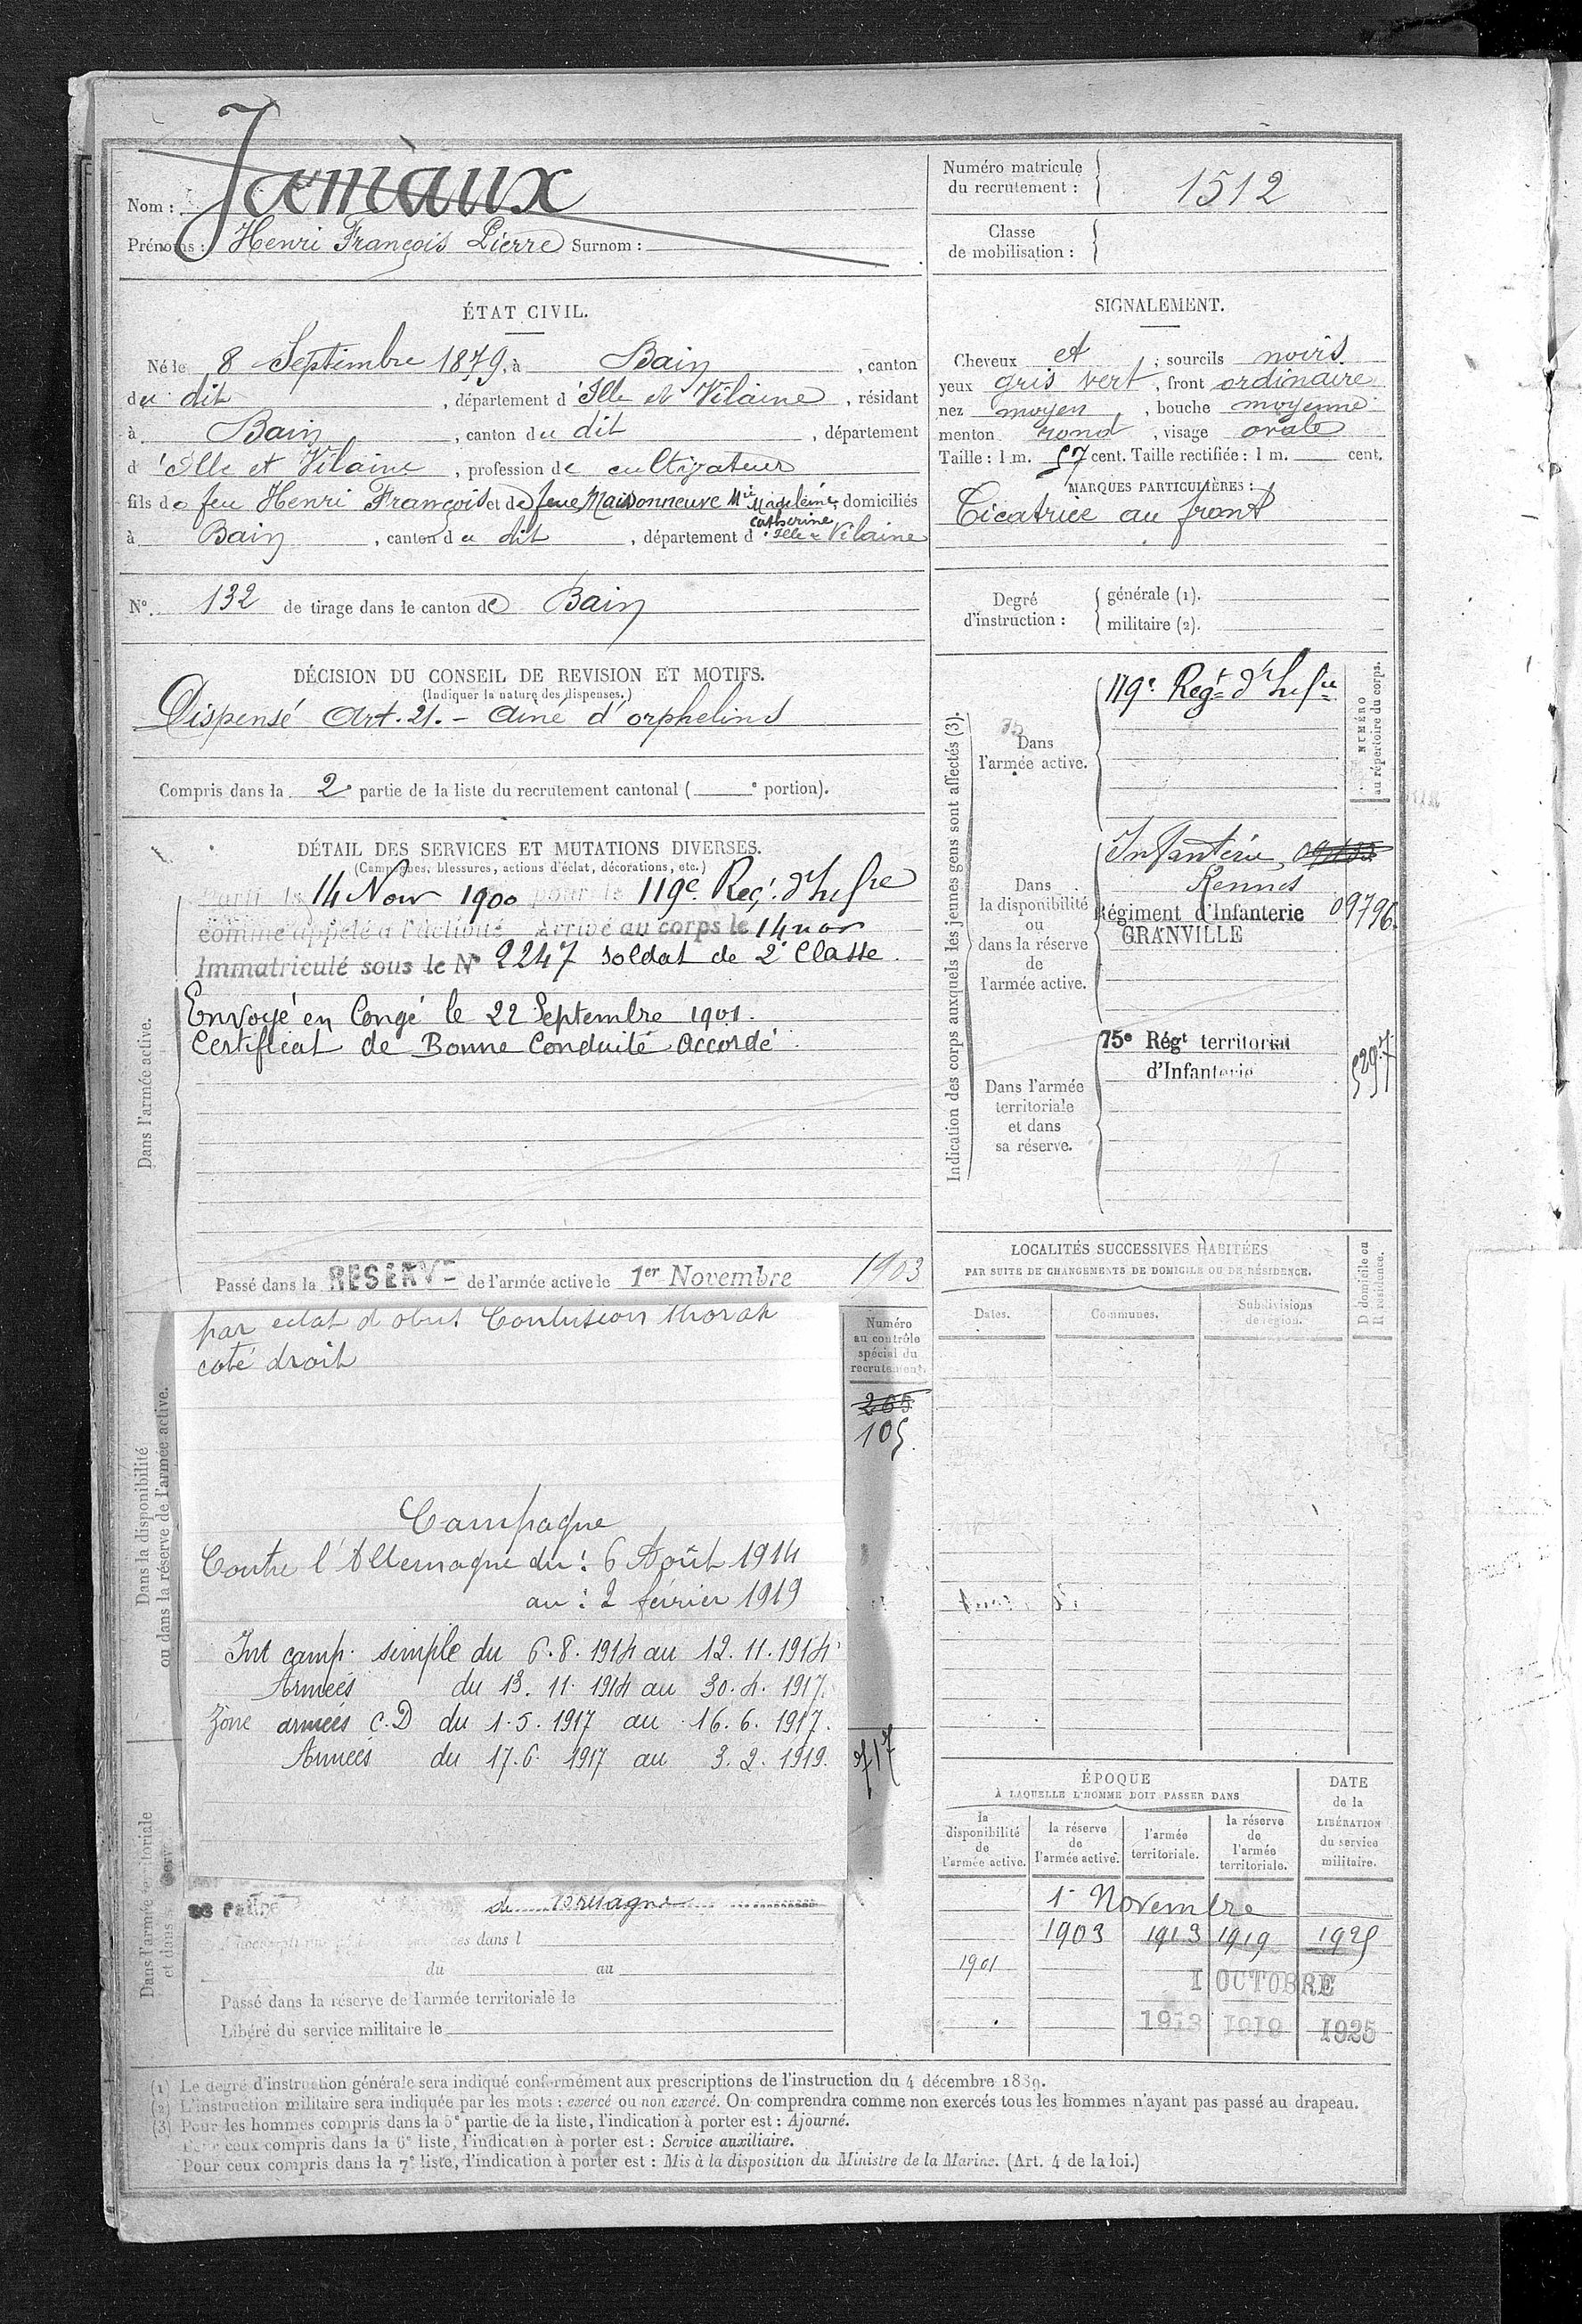 Nom : Jamaux
Prénoms : Henri François Pierre Surnom :
Numéro matricule du recrutement : 1512
Classe de mobilisation :
ÉTAT CIVIL.
Né le 8 Septembre 1879, à Bain, canton
du dit, département d'Ille et Vilaine, résidant
à Bain, canton du dit, département
d'Ille et Vilaine, profession de cultivateur
fils de feu Henri François et de feue Maisonneuve Mie Madeleine Catherine, domiciliés
à Bain, canton du dit, département d'Ille & Vilaine
N° 132 de tirage dans le canton de Bain
SIGNALEMENT.
Cheveux et ; sourcils noirs
yeux gris vert, front ordinaire
nez moyen, bouche moyenne
menton rond, visage ovale
Taille : 1 m. 57 cent. Taille rectifiée : 1 m. cent.
MARQUES PARTICULIÈRES :
Cicatrice au front
Degré d'instruction :
générale (1).
militaire (2).
DÉCISION DU CONSEIL DE REVISION ET MOTIFS.
(Indiquer la nature des dispenses.)
Dispensé Art. 21. - Ainé d'orphelins
Compris dans la 2e partie de la liste du recrutement cantonal ( e portion).
DÉTAIL DES SERVICES ET MUTATIONS DIVERSES.
(Campagnes, blessures, actions d'éclat, décorations, etc.)
Dans l'armée active.
Parti le 14 Nov 1900 pour le 119e Reg. d'Infie
comme appelé à l'activité Arrivé au corps le 14 nov
Immatriculé sous le N° 2247 soldat de 2e Classe
Envoyé en Congé le 22 Septembre 1901.
Certificat de Bonne Conduite Accordé.
Passé dans la RESERVE de l'armée active le 1er Novembre 1903
Indication des corps auxquels les jeunes gens sont affectés (3).
NUMÉRO au répertoire du corps.
Dans l'armée active.
119e Regt d'Infie
Dans la disponibilité ou dans la réserve de l'armée active.
Infanterie
Rennes
Régiment d'Infanterie 09796
GRANVILLE
Dans l'armée territoriale et dans sa réserve.
75e Régt territorial
d'Infanterie
5297
LOCALITÉS SUCCESSIVES HABITÉES
PAR SUITE DE CHANGEMENTS DE DOMICILE OU DE RÉSIDENCE.
Dates.
Communes.
Subdivisions de région.
D domicile ou R résidence.
Dans la disponibilité
ou dans la réserve de l'armée active.
par eclat d'obus Contusion thorax
coté droit
Numéro au contrôle spécial du recrutement.
265
105
Campagne
Contre l'Allemagne du : 6 Août 1914
au : 2 février 1919
Int camp. simple du 6.8.1914 au 12.11.1914
Armées du 13.11.1914 au 30.4.1917.
Zone armées C.D du 1.5.1917 au 16.6.1917.
Armées du 17.6.1917 au 3.2.1919.
717
Dans l'armée territoriale
et dans
de Bretagne
du au
Passé dans la réserve de l'armée territoriale le
Libéré du service militaire le
ÉPOQUE
À LAQUELLE L'HOMME DOIT PASSER DANS
la disponibilité de l'armée active.
la réserve de l'armée active.
l'armée territoriale.
la réserve de l'armée territoriale.
DATE de la LIBÉRATION du service militaire.
1er Novembre
1903 1913 1919 1925
1901
1 OCTOBRE
1913 1919 1925
(1) Le degré d'instruction générale sera indiqué conformément aux prescriptions de l'instruction du 4 décembre 1889.
(2) L'instruction militaire sera indiquée par les mots : exercé ou non exercé. On comprendra comme non exercés tous les hommes n'ayant pas passé au drapeau.
(3) Pour les hommes compris dans la 5e partie de la liste, l'indication à porter est : Ajourné.
Pour ceux compris dans la 6e liste, l'indication à porter est : Service auxiliaire.
Pour ceux compris dans la 7e liste, l'indication à porter est : Mis à la disposition du Ministre de la Marine. (Art. 4 de la loi.)